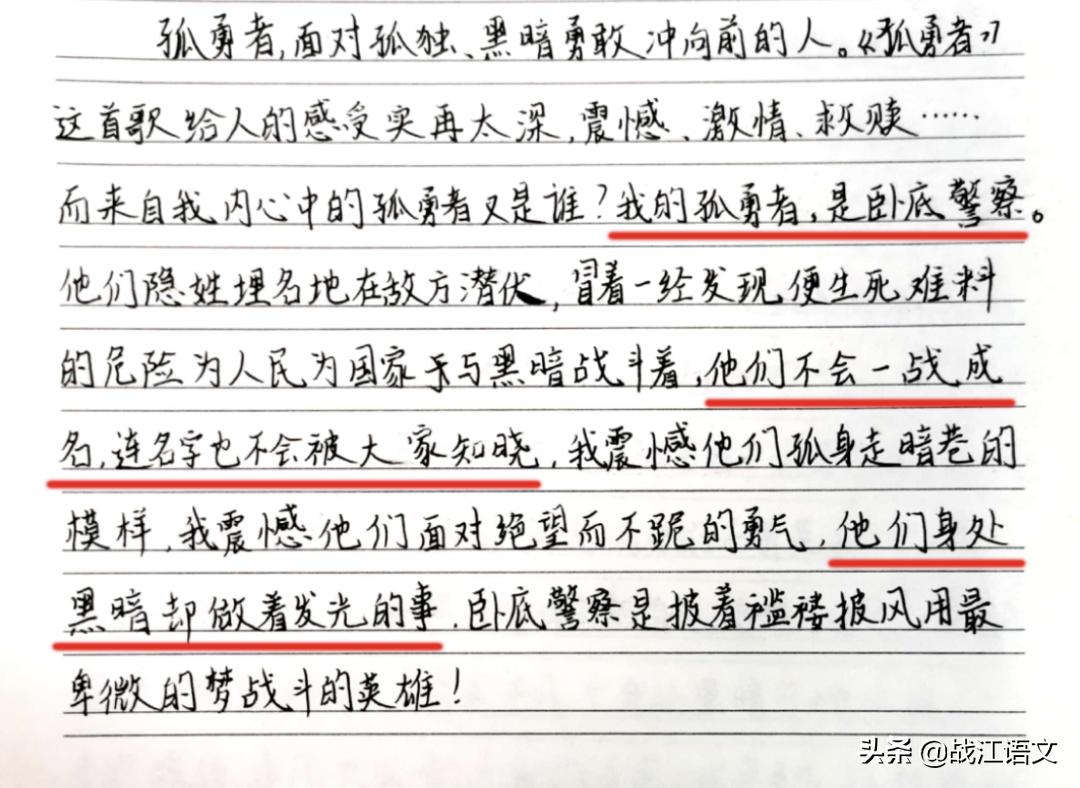 孤勇者,面对孤独、黑暗勇敢冲向前的人。《孤勇者》
这首歌给人的感受实再太深,震憾、激情、救赎……
而来自我内心中的孤勇者又是谁?我的孤勇者,是卧底警察。
他们隐姓埋名地在敌方潜伏,冒着一经发现便生死难料
的危险为人民为国家与黑暗战斗着,他们不会一战成
名,连名字也不会被大家知晓,我震憾他们孤身走暗巷的
模样,我震憾他们面对绝望而不跪的勇气,他们身处
黑暗却做着发光的事,卧底警察是披着褴褛披风用最
卑微的梦战斗的英雄!
头条 @战江语文